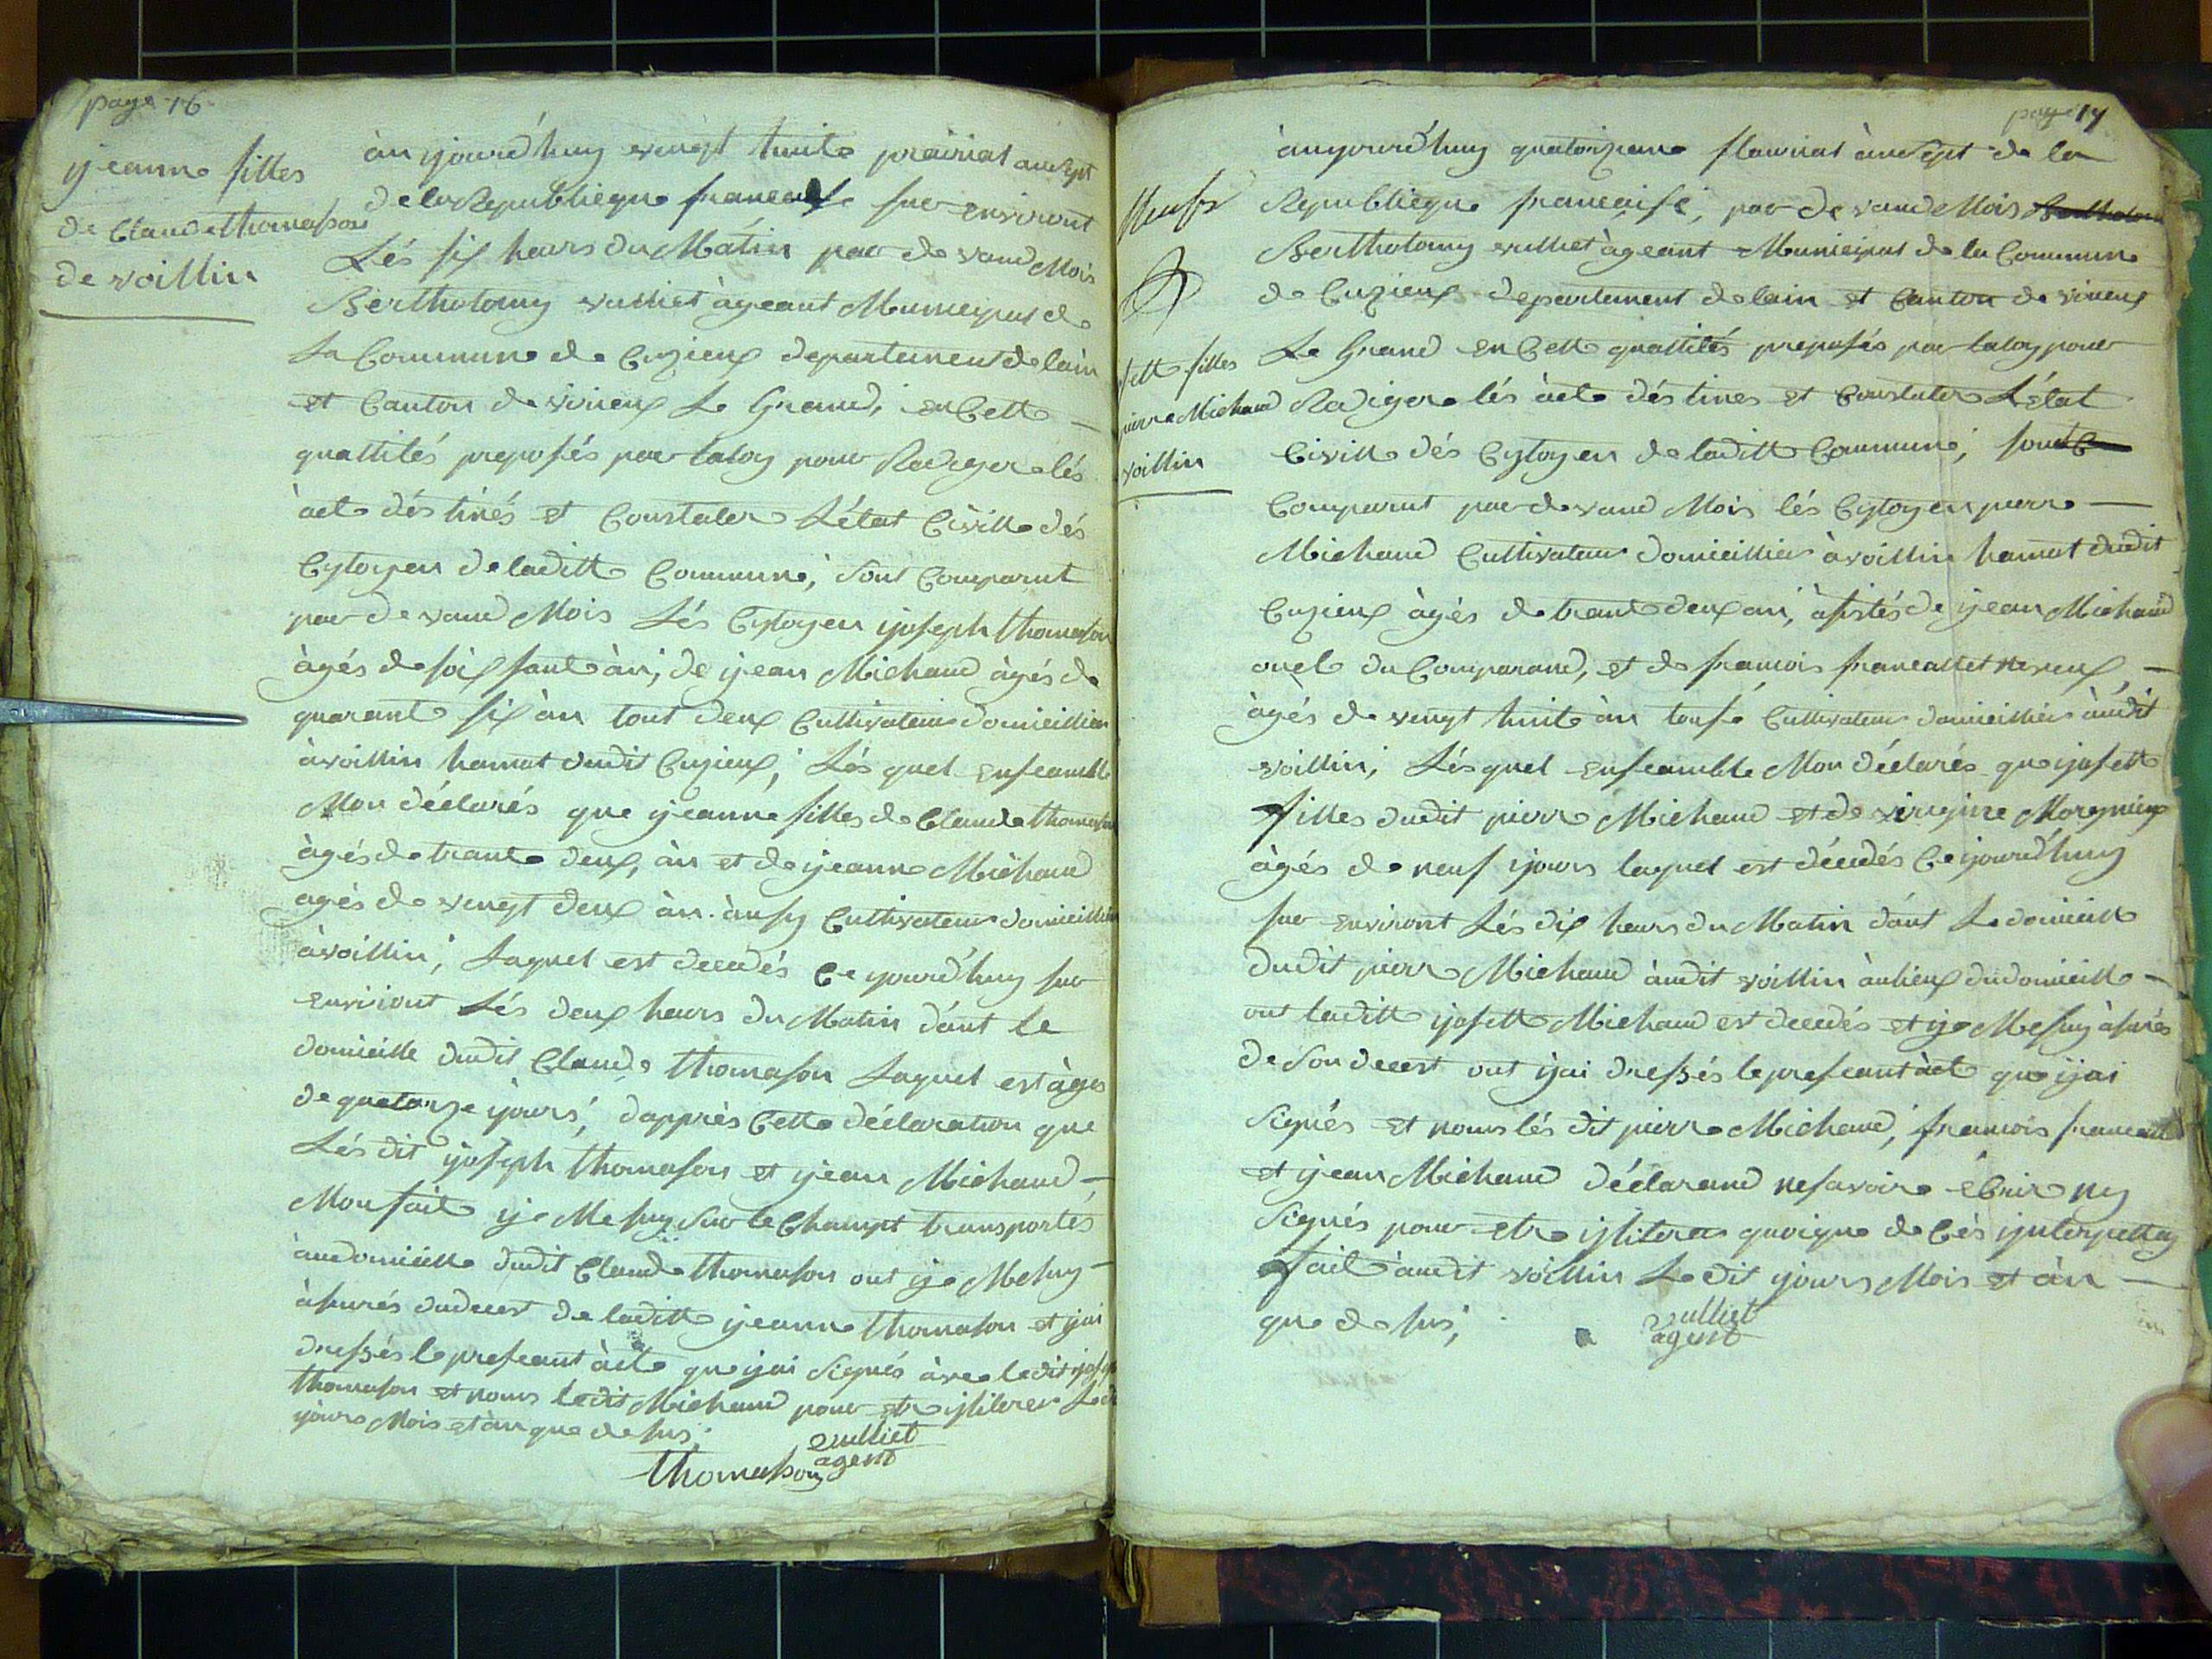 page 16
yjeanne filles
de Claude thomasson
de voillin
àu yjourd'huy vengt huite praiirial ansept
de la Republieque francaise sur environt
Lés six heurs du Matin par de vand Mois
Bertholomy vulliet àgeant Municipal de
La Commune de Cuzieux departement de lain
et Canton de virieux Le Grand, en Cette
quallités preposés par laloy pour Rediger lés
àcte déstinés et Constater L'état Civille dés
Cytoyen de laditte Commune, sont Comparut
par de vand Mois Lés Cytoyen yjoseph thomasson
àgés de soixsante àn, de yjean Michaud àgés de
quarante six àn tout deux Cultivateur domicillier
àvoillin hamat dudit Cuzieux, Lésquel enseamble
Mon déclarés que yjeanne filles de Claude thomasson
àgés de trante deux, àn et de yjeanne Michaud
agés de vengt deux àn àusy Cultivateur domicillier
àvoillin, Laquel est decedés Ce yjourd'huy sur
environt Lés deux heurs du Matin dant le
domicille dudit Claude thomason Laquel est àgés
de quatorze yjours, dapprès Cette déclaration que
Lésdit yjoseph thomason et yjean Michaud
Mon fait yje Me suy sur le Champt transportés
àudomicille dudit Claude thomason out yje Me suy
àsurés dudecest de laditte yjeanne thomason et yjai
dressés le preseant àcte que yjai Signés àvec ledit yjoseph
thomason et nonus ledit Michaud pour etre ysliterer Ledit
yjours Mois et àn que desus,
vulliet
agent
thomason
page 17
àuyjourd'huy quatorzieme flaurial àn sept de la
Republieque francaise, par de vand Mois Bertholomy
Bertholomy vulliet àgeant Municipal de la Commune
de Cuzieux departement de lain et Canton de virieux
Le Grand en Cette quallités preposés par laloy pour
Rediger lés àcte déstines et Constater L'état
Civille dés Cytoyen de laditte Commune, sont
Comparut par de vand Mois lés Cytoyen pierre
Michaud Cultivateur domicillier àvoillin hamat dudit
Cuzieux àgés de trante deux an, àsistés de yjean Michaud
oncle du Comparand, et de francois francallet neveux,
àgés de vengt huite àn tousé Cultivateur domicillier àudit
voillin, Lésquel enseamble Mon déclarés que yjosette
filles dudit pierre Michaud et de virginie Moregnieux
àgés de neuf yjours laquel est décedés Ce yjourd'huy
sur environt Lés dix heurs du Matin dant Le domicille
dudit pierre Michaud àudit voillin àulieux dudomicille
out laditte yjosette Michaud est decedés et yje Me suy àsurés
de Son decest out yjai dressés le preseant àcte que yjai
Signés et nonus lés dit pierre Michaud, francois francallet
et yjean Michaud déclarand ne savoire èCrire ny
Signés pour etre ysliterer quoique de Cés ynterpellay
fait àudit voillin Ledit yjours Mois et àn
que desus,
vulliet
agent
pierre Michaud
voillin